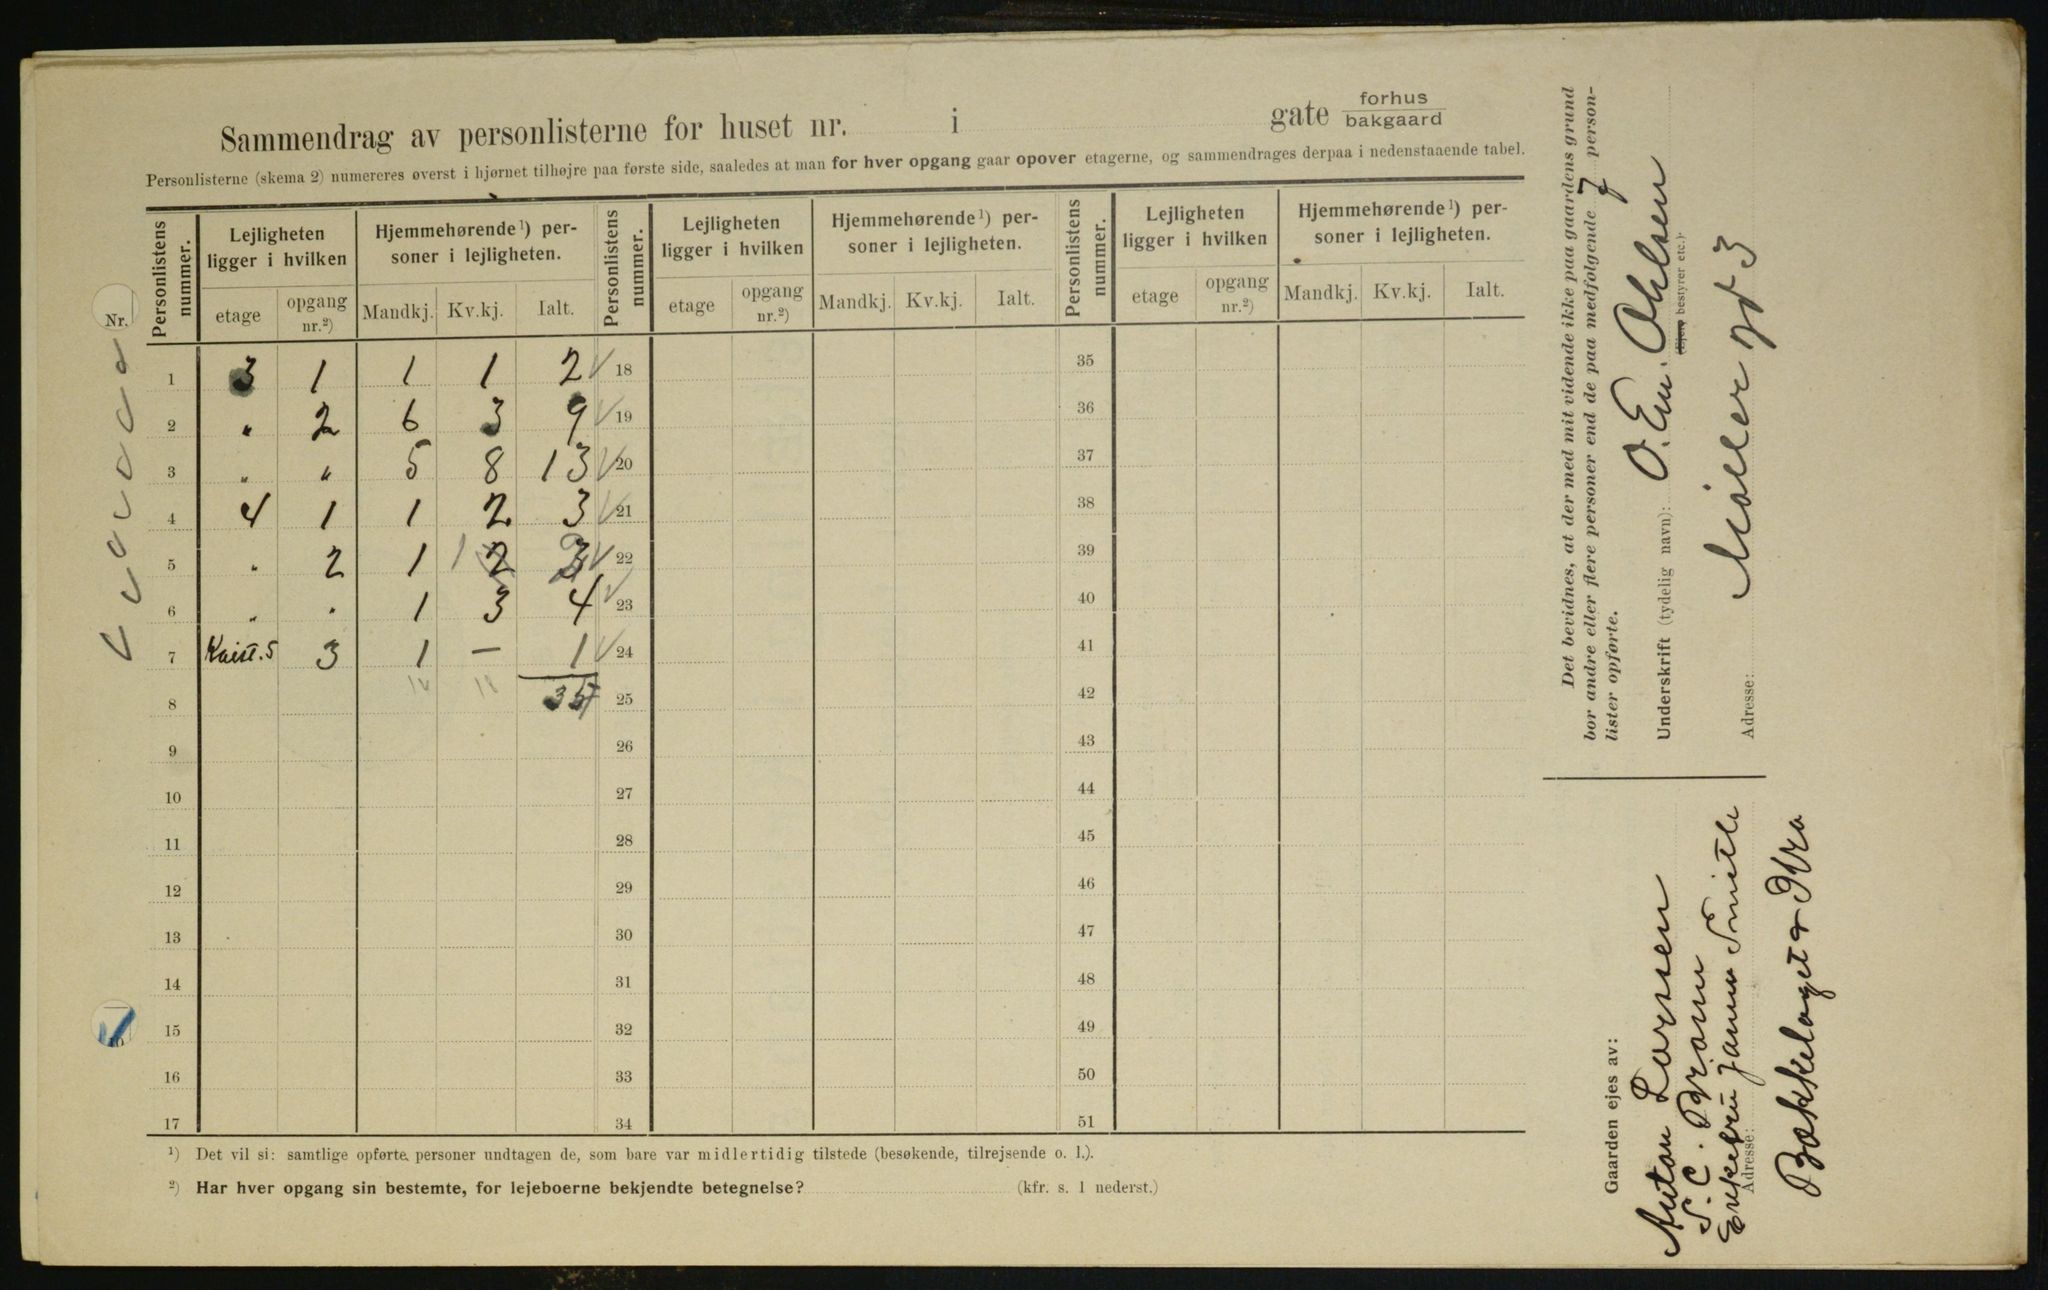 Sammendrag av personlisterne for huset nr. i gate forhus bakgaard
Personlisterne (skema 2) numereres øverst i hjørnet tilhøjre paa første side, saaledes at man for hver opgang gaar opover etagerne, og sammendrages derpaa i nedenstaaende tabel.
Nr.
Personlistens nummer. Lejligheten ligger i hvilken Hjemmehørende¹) personer i lejligheten. Personlistens nummer. Lejligheten ligger i hvilken Hjemmehørende¹) personer i lejligheten. Personlistens nummer. Lejligheten ligger i hvilken Hjemmehørende¹) personer i lejligheten.
etage opgang nr.²) Mandkj. Kv.kj. Ialt. etage opgang nr.²) Mandkj. Kv.kj. Ialt. etage opgang nr.²) Mandkj. Kv.kj. Ialt.
1 3 1 1 1 2 18 35
2 " 2 6 3 9 19 36
3 " " 5 8 13 20 37
4 4 1 1 2 3 21 38
5 " 2 1 1 2 3 22 39
6 " " 1 3 4 23 40
7 5 3 1 — 1 24 41
8 25 42
9 26 43
10 27 44
11 28 45
12 29 46
13 30 47
14 31 48
15 32 49
16 33 50
17 34 51
¹) Det vil si: samtlige opførte personer undtagen de, som bare var midlertidig tilstede (besøkende, tilrejsende o. l.).
²) Har hver opgang sin bestemte, for lejeboerne bekjendte betegnelse? (kfr. s. 1 nederst.)
Det bevidnes, at der med mit vidende ikke paa gaardens grund
bor andre eller flere personer end de paa medfølgende 7 person-
lister opførte.
Underskrift (tydelig navn): O. Em. Ohlsen
(Ejer, bestyrer etc.)
Adresse: Møllergt 3
Gaarden ejes av:
Anton Larsen
S. C.
Enkefru Janna Smith
Adresse:
Bækkelaget